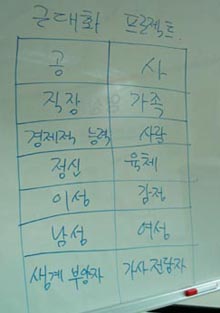 근대화 프로젝트
공 사
직장 가족
경제적 능력 사랑
정신 육체
이성 감정
남성 여성
생계 부양자 가사전담자